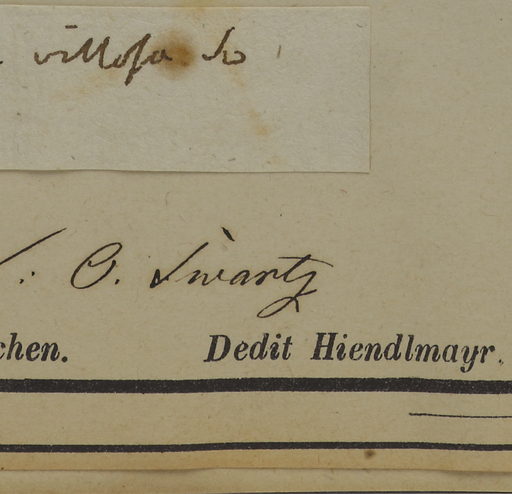 villosa Sw
: O. Swartz
chen. Dedit Hiendlmayr.